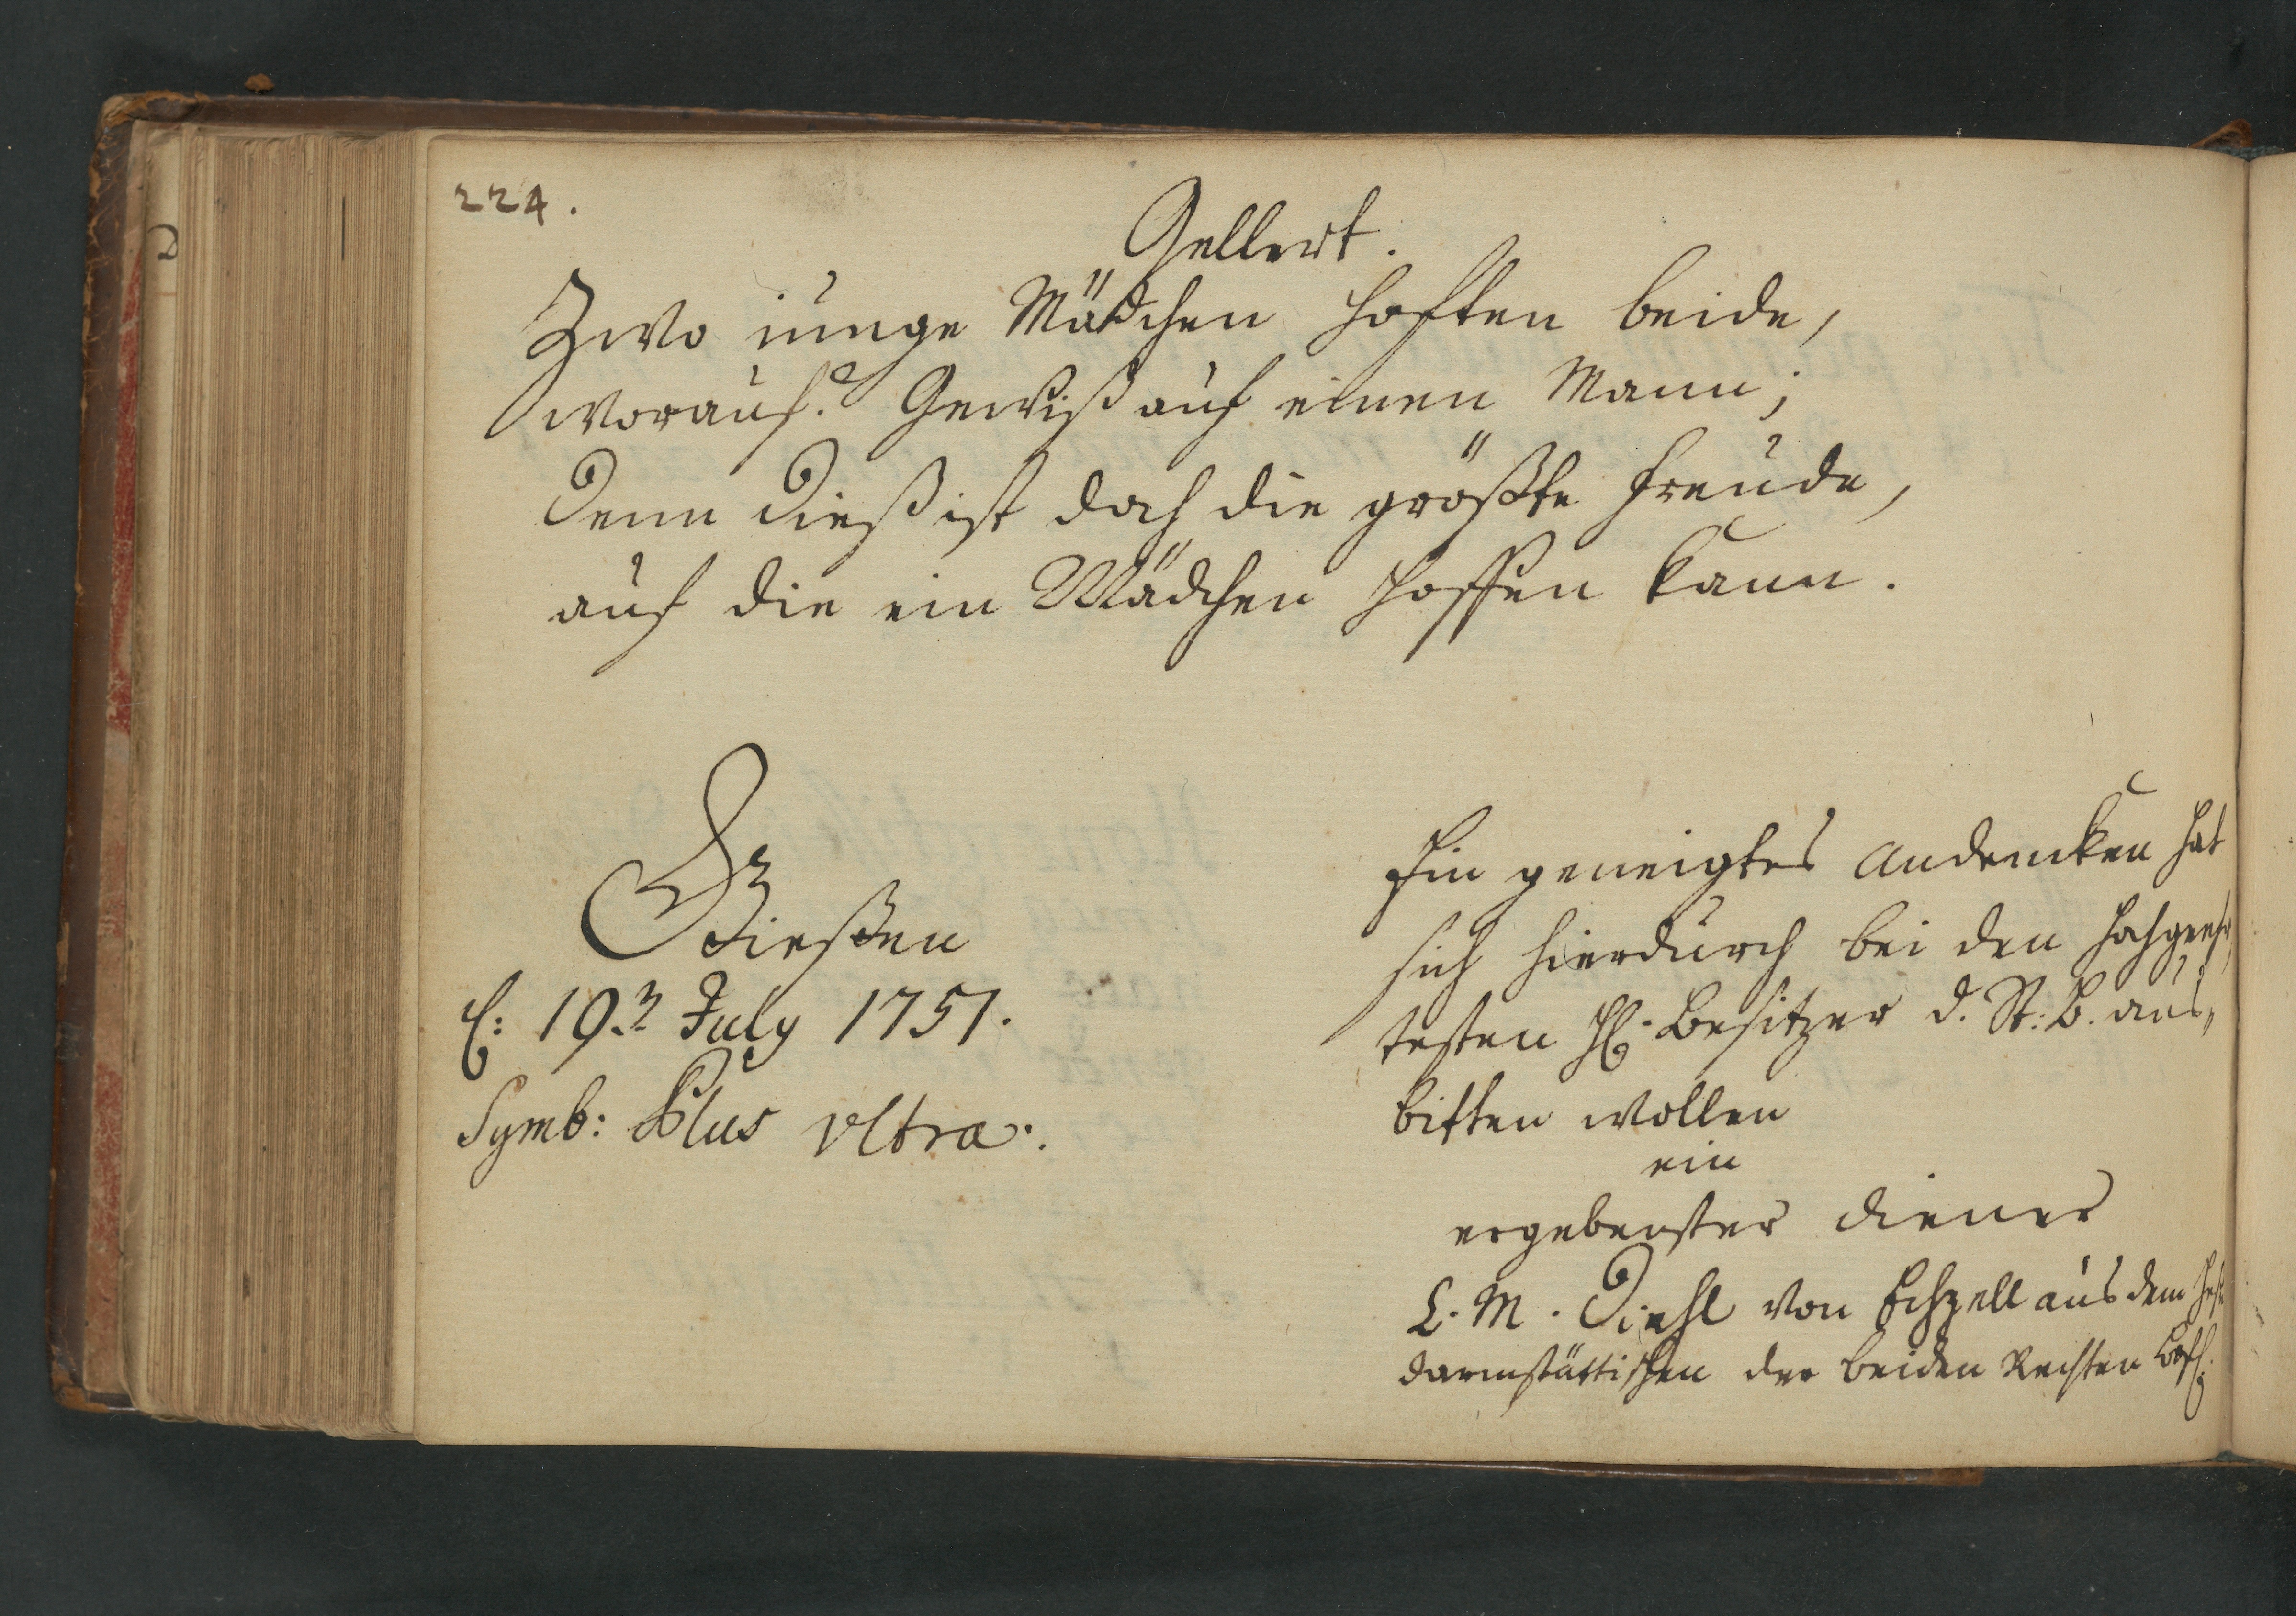 224.
Gellert.
Zwo iunge Mädchen hoften beide,
worauf? Gewiß auf einen Mann;
Denn dieß ist doch die größte Freude,
auf die ein Mädchen hoffen kann.
Gießen
d: 19. July 1751.
Symb: Plus vltra.
Ein geneigtes Andencken hat
sich hierdurch bei den hochgeehr
testen H. Besitzer d. St: B. aus„
bitten wollen
ein
ergebenster Diener
L. M. Diehl von Echzell aus dem
Darmstättischen der beiden Rechten